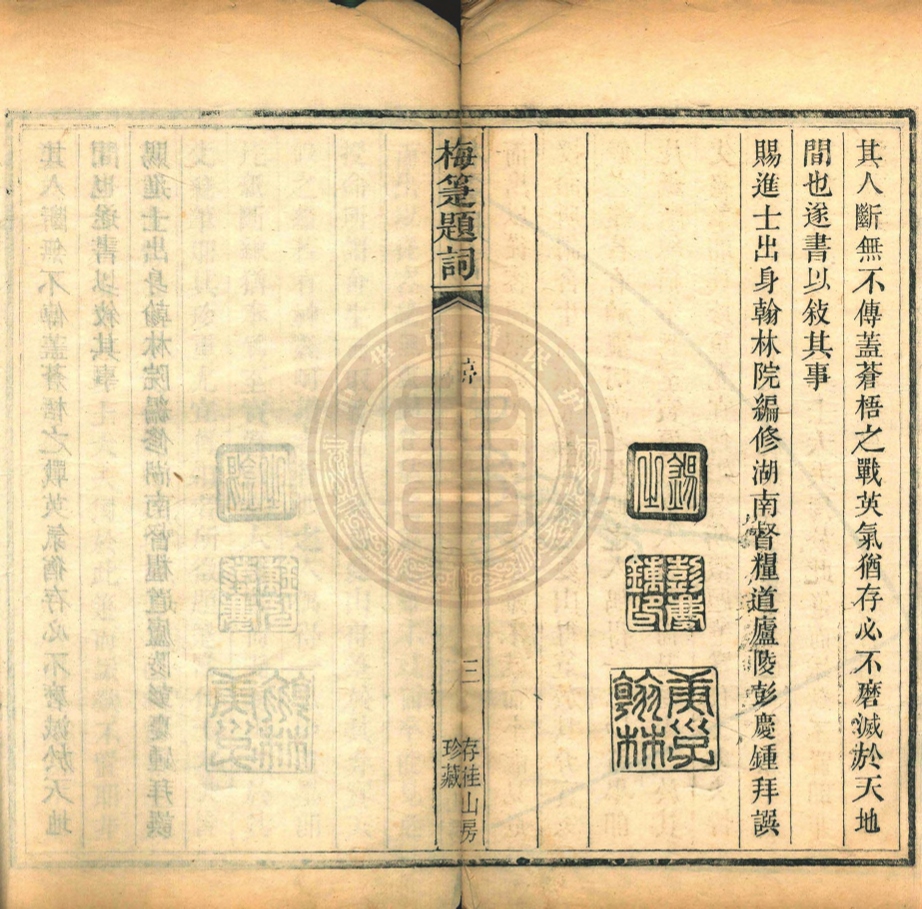 其人斷無不傳蓋蒼梧之戰英氣猶存必不磨滅於天地
間也遂書以敘其事
賜進士出身翰林院編修湖南督糧道廬陵彭慶鍾拜譔
彭慶
鍾印
翰林
梅簃題詞
序
三
存桂山房
珍藏